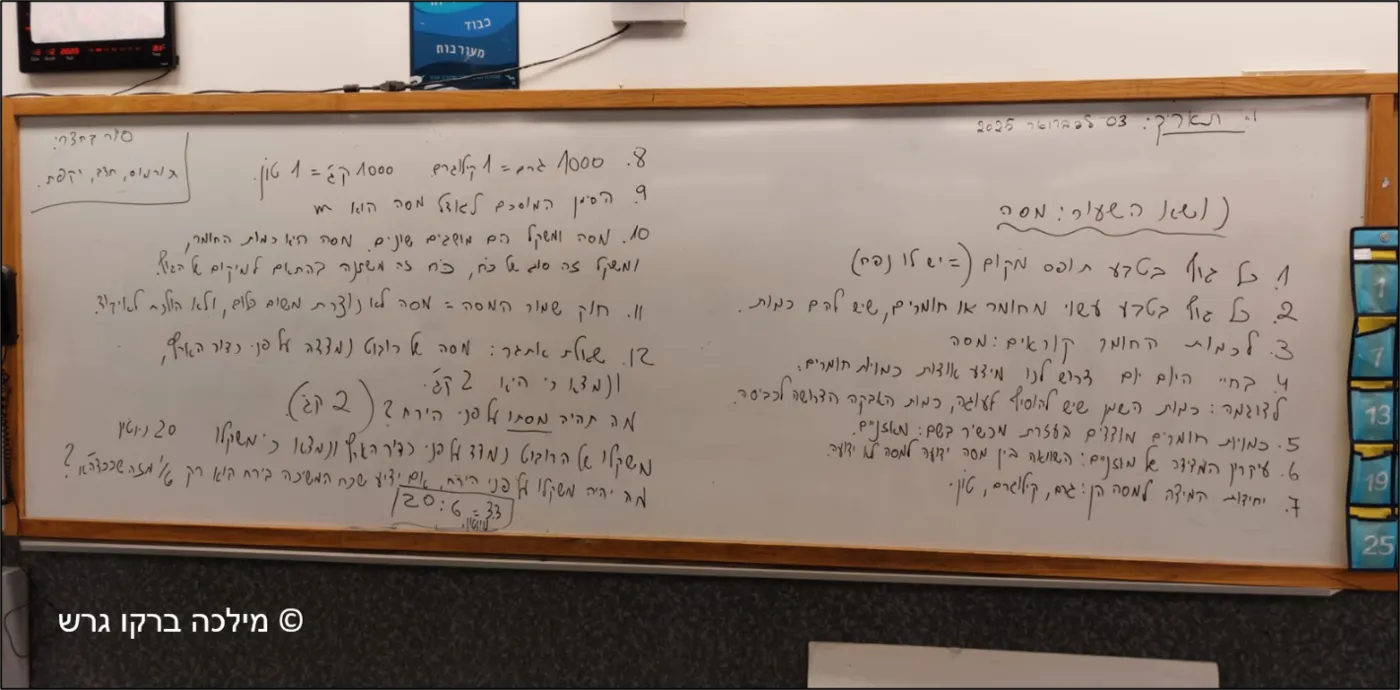 כבוד
מעורבות
תאריך: 03 לפברואר 2025
נושא השעור: מסה
1. כל גוף בטבע תופס מקום (= יש לו נפח)
2. כל גוף בטבע עשוי מחומר או חומרים, שיש להם כמות.
3. לכמות החומר קוראים: מסה
4. בחיי היום יום דרוש לנו מידע אודות כמויות חומרים.
לדוגמה: כמות השמן שיש להוסיף לעוגה, כמות האבקה הדרושה לכביסה.
5. כמויות חומרים מודדים בעזרת מכשיר בשם: מאזניים.
6. עיקרון המדידה של מוזניים: השוואה בין מסה ידועה למסה לא ידועה.
7. יחידות המידה למסה הן: גרם, קילוגרם, טון.
8. 1000 גרם = 1 קילוגרם 1000 ק"ג = 1 טון.
9. הסימן המוסכם לגודל מסה הוא m
10. מסה ומשקל הם מושגים שונים. מסה היא כמות החומר,
ומשקל זה סוג של כח, כח זה משתנה בהתאם למיקום של הגוף.
11. חוק שמור המסה = מסה לא נוצרת משום כלום, ולא הולכת לאיבוד.
12. שאלת אתגר: מסה של רובוט נמדדה על פני כדור הארץ,
ונמצא כי היא 2 ק"ג.
מה תהיה מסתו על פני הירח? (2 ק"ג)
משקלו של הרובוט נמדד על פני כדור הארץ ונמצא כי משקלו 20 ניוטון
מה יהיה משקלו על פני הירח, אם ידוע שכח המשיכה בירח הוא רק 1/6 מזה שבכדה"א?
20:6=3.3
ניוטון
תורמוס, חרב, יקפת.
1
7
13
19
25
© מילכה ברקו גרש